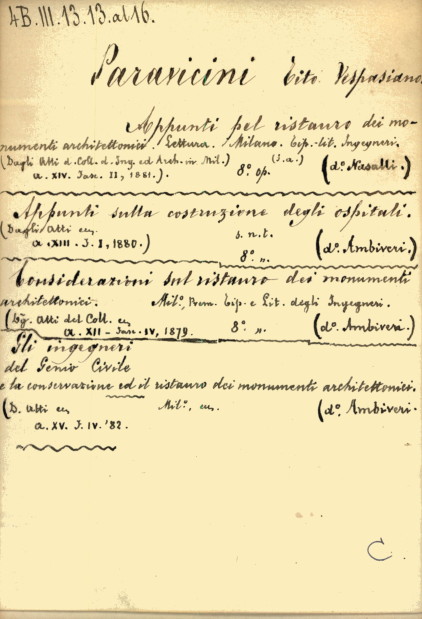 4B.III.13.13.al 16.
Paravicini Tito Vespasiano.
Appunti pel ristauro dei mo-
numenti architettonici. Lettura. Milano. Tip.-lit. Ingegneri.
(Dagli Atti d. Coll. d. Ing. ed Arch. in Mil.) (s.a.)
a. XIV. Fasc. II, 1881.) 8º. op. (dº. Nasalli.)
Appunti sulla costruzione degli ospitali.
(Dagli Atti s. n. t.
a. XIII. F. I, 1880.) 8º. „ (dº. Ambiveri.)
Considerazioni sul ristauro dei monumenti
architettonici. Milº, Prem. Tip. e Lit. degli Ingegneri.
Atti del Coll.
a. XII - Fasc. IV, 1879. 8º. „ (dº. Ambiveri.)
Gli ingegneri
del Genio Civile
e la conservazione ed il ristauro dei monumenti architettonici.
(D. Atti Milº., (dº. Ambiveri.
a. XV. F. IV. '82.
C.